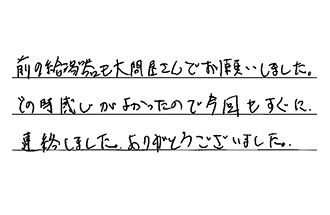 前の給湯器も大問屋さんでお願いしました。
その時感じがよかったので今回もすぐに
連絡しました。ありがとうございました。